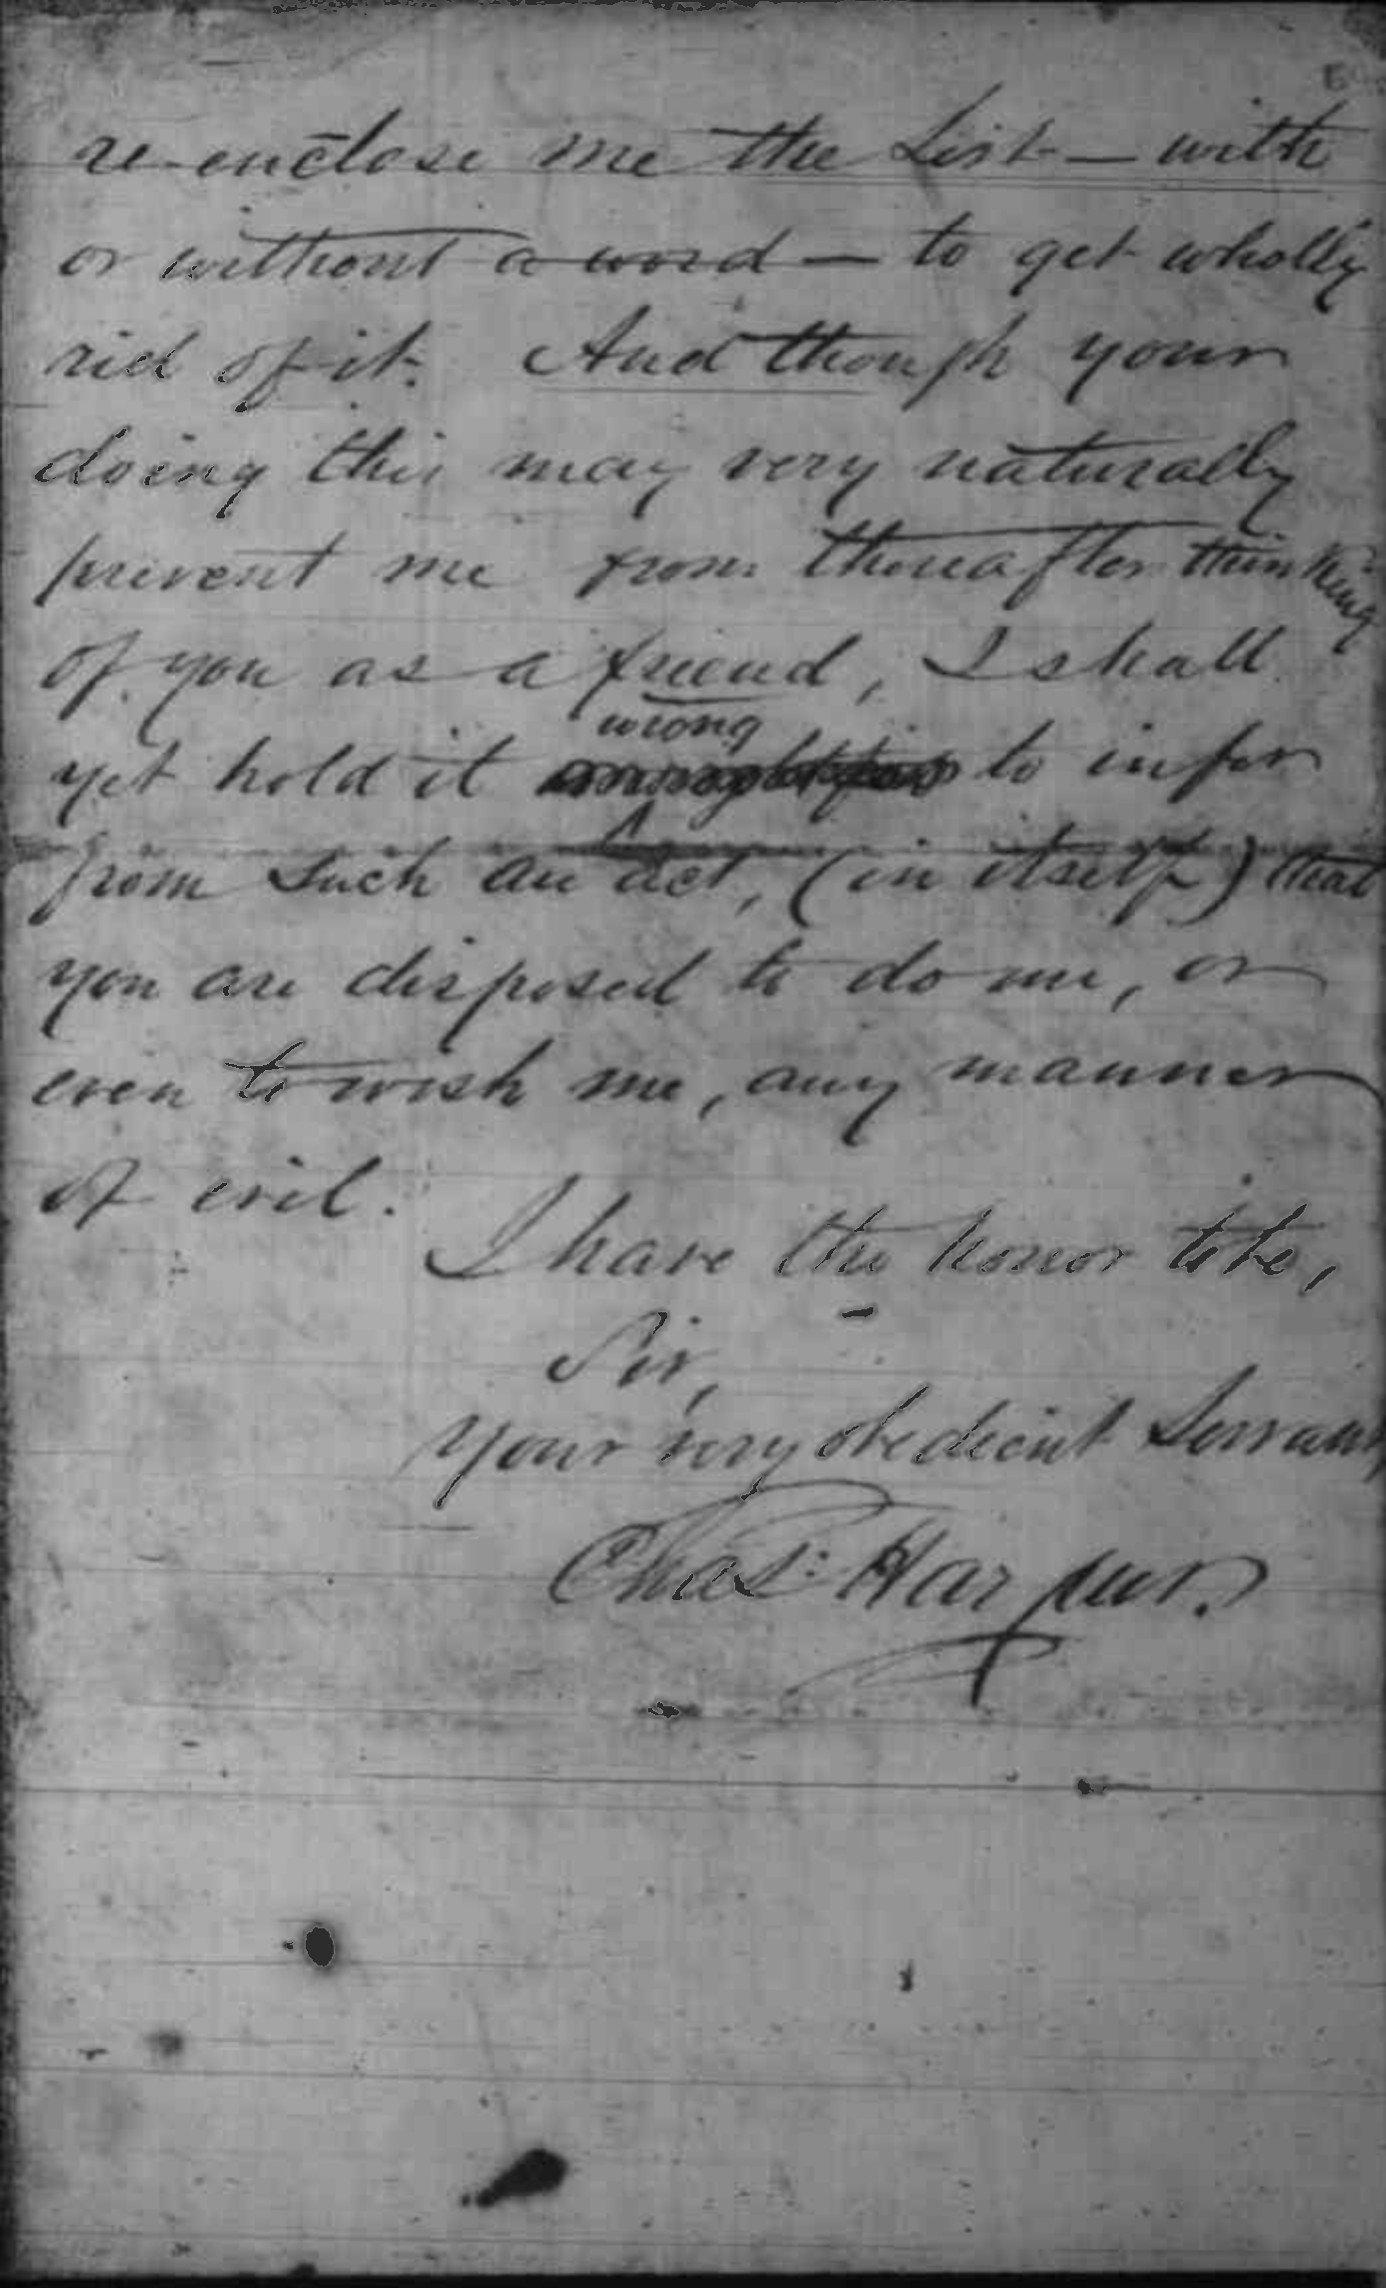 re-enclose me the List — with
or without a word — to get wholly
rid of it. And though your
doing this may very naturally
prevent me from thereafter thinking
of you as a friend, I shall
wrong
yet hold it to infer
from such an act, (in itself) that
you are disposed to do me, or
even to wish me, any manner
of evil.
I have the honor to be,
Sir,
Your very obedient Servant
Chas: Harpur.